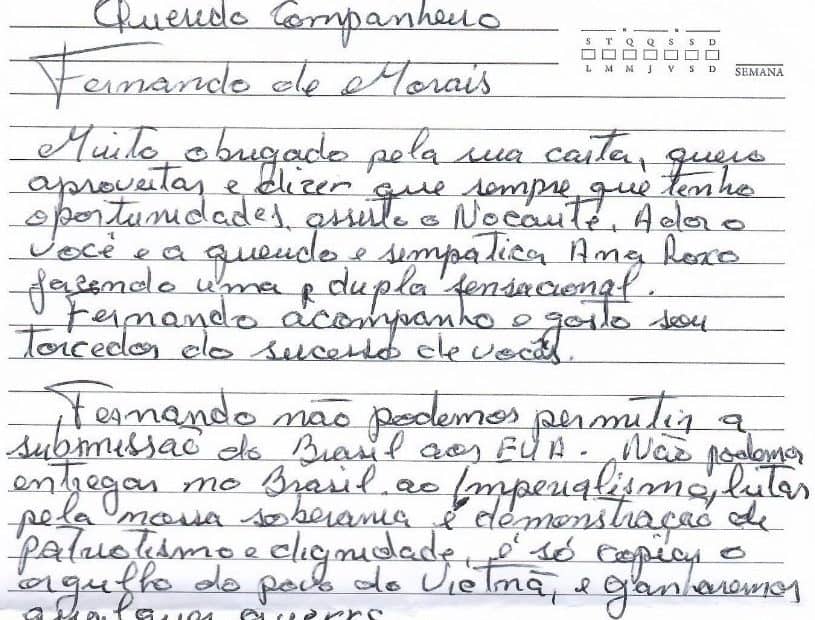 Querido Companheiro
S T Q Q S S D
L M M J V S D
SEMANA
Fernando de Morais
Muito obrigado pela sua carta, quero
aproveitar e dizer que sempre que tenho
oportunidades, assisto o Nocaute, Adoro
você e a querido e simpática Ana Roxo
fazendo uma dupla sensacional.
Fernando acompanho e gosto sou
torcedor do sucesso de vocês.
Fernando não podemos permitir a
submissão do Brasil aos EUA. Não podemos
entregar no Brasil ao Imperialismo, lutar
pela nossa soberania é demonstração de
patriotismo e dignidade, é só copiar o
orgulho do povo do Vietnã, e ganharemos
qualquer guerra